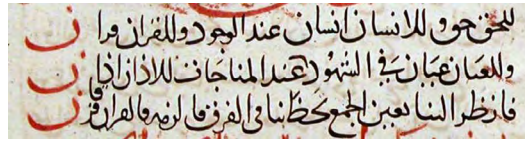 للحق حق وللانسان انسان عند الوجود وللقران قران
وللعيان عيان في الشهود عند المناجات للاذان اذان
فانظر الينا بعين الجمع تحظ بنا في الفرق فالزمه فالقران فرقان